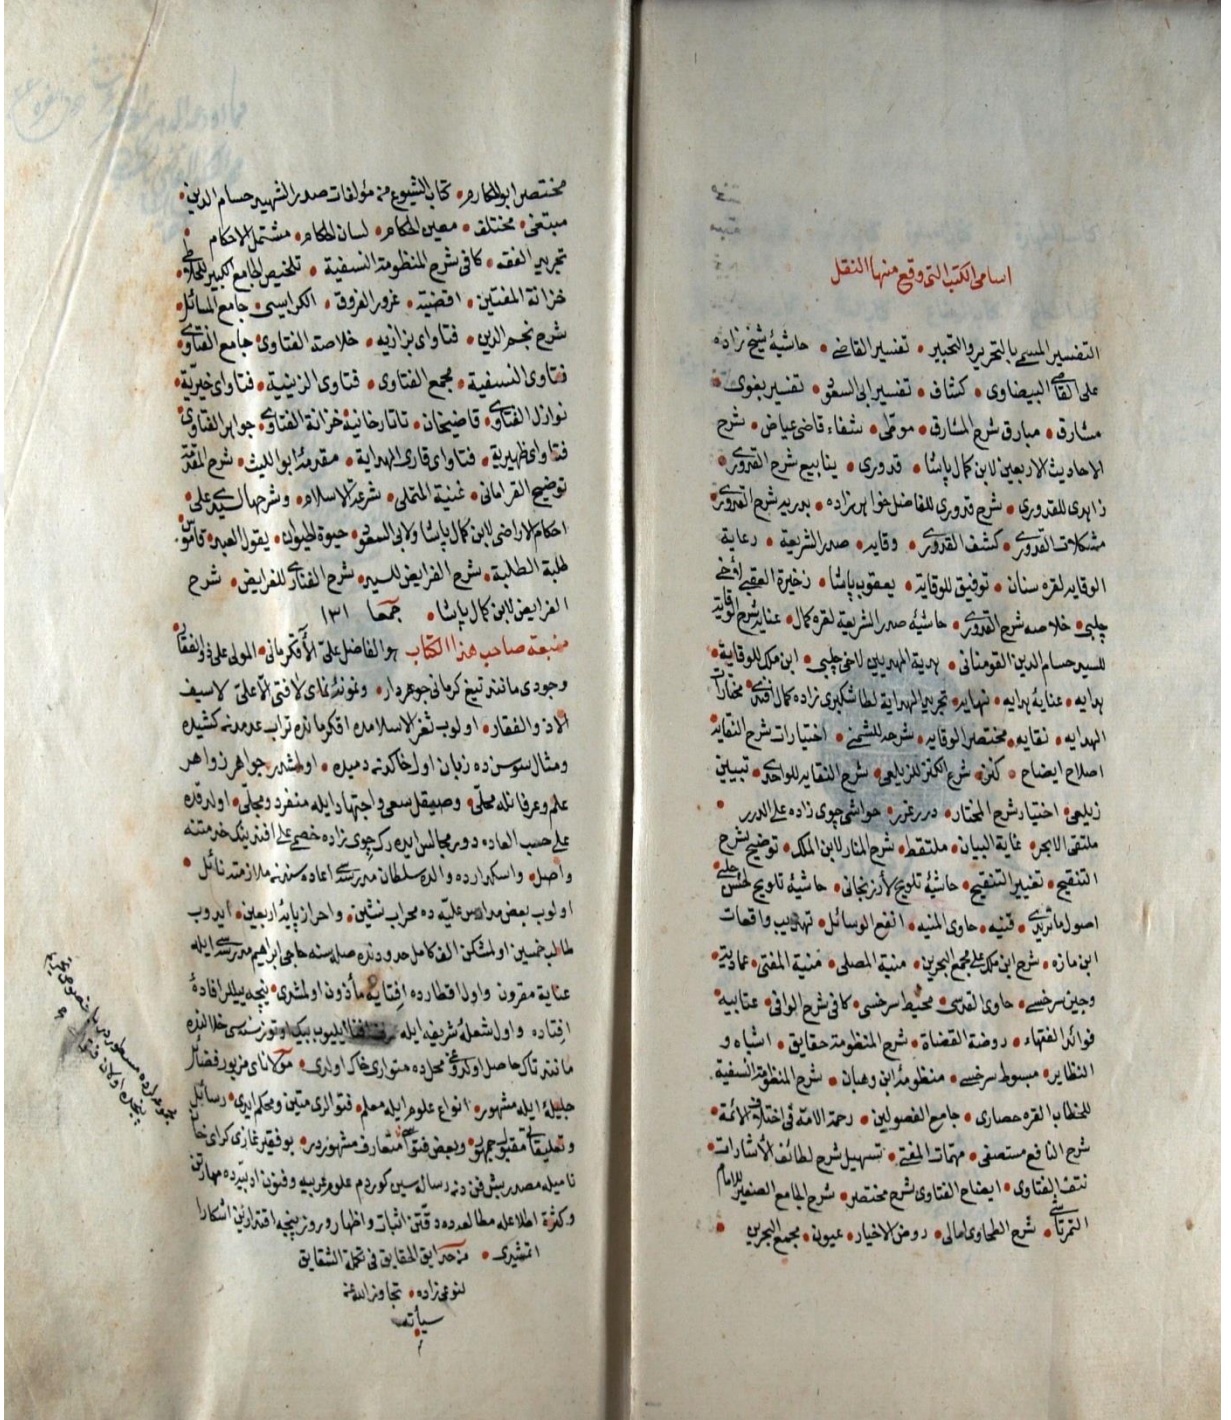 اسامى الكتب التى وقع منها النقل
التفسير المسمى بالتحرير والتحبير • تفسير القاضى • حاشيهٔ شيخ زاده
على القاضى البيضاوى • كشاف • تفسير ابى السعود • تفسير بغوى •
مشارق • مبارق شرح المشارق • موطّى • شفاء قاضى عياض • شرح
الاحاديث الاربعين لابن كمال پاشا • قدورى • ينابيع شرح القدورى •
زاهدى للقدورى • شرح قدورى للفاضل خواهر زاده • شرح القدورى •
مشكلات القدورى • كشف القدورى • وقايه • صدر الشريعة • رعاية
الوقايه لقره سنان • توفيق للوقاية • يعقوب پاشا • ذخيرة العقبى لأخى
چلبى • خلاصه شرح القدورى • حاشيهٔ صدر الشريعة لقره كمال • عنايه شرح الوقايه
للسيد حسام الدين القومنانى • هدية المهديين لاخى چلبى • ابن ملك للوقاية •
هدايه • عناية هدايه • نهايه • تجريد الهداية لطاشكبرى زاده كمال افندى • مختارات
الهدايه • نقايه • مختصر الوقايه • شرحه للشمنى • اختيارات شرح النقايه
اصلاح ايضاح • كنز • شرح الكنز للزيلعى • شرح النقايه للواحدى • تبيين
زيلعى • اختيار شرح المختار • درر غرر • حواشى چوى زاده على الدرر •
ملتقى الابحر • غاية البيان • ملتقط • شرح المنار لابن الملك • توضيح شرح
التنقيح • تغيير التنقيح • حاشيهٔ تلويح لأرزنجانى • حاشيهٔ تلويح لحسن چلبى
اصول • قنيه • حاوى المنيه • انفع الوسائل • تهذيب واقعات
ابن مازه • شرح ابن ملك على مجمع البحرين • منية المصلى • منية المفتى • عماديه •
وجيز سرخسى • حاوى القدسى • محيط سرخسى • كافى شرح الوافى • عتابيه •
فوائد الفقهاء • روضة القضاة • شرح المنظومة حقايق • اشباه و
النظاير • مبسوط سرخسى • منظومهٔ ابن وهبان • شرح المنظومة النسفية •
للخطاب القره حصارى • جامع الفصولين • رحمة الامة فى اختلاف الائمة •
شرح النافع مستصفى • مهمّات المفتى • تسهيل شرح لطائف الأشارات •
نتف الفتاوى • ايضاح الفتاوى شرح مختصر • شرح الجامع الصغير للامام
التمرتاشى • شرح الطحاوى امالى • روض الاخيار • عيون • مجمع البحرين •
مختصر ابو المكارم • كتاب الشيوع من مؤلفات صدر الشهيد حسام الدين •
مبتغى • مختلف • معين الحكام • لسان الحكام • مشتمل الاحكام •
تجريد الفقه • كافى شرح المنظومة النسفية • تلخيص الجامع الكبير للخلاطى •
خزانة المفتين • اقضية • غرور الفروق • الكرابيسى • جامع المسائل •
شرح نجم الدين • فتاواى بزازيه • خلاصة الفتاوى • جامع الفتاوى •
فتاوى النسفية • مجمع الفتاوى • فتاوى الزينية • فتاواى خيريّة •
نوازل الفتاوى • قاضيخان • تاتارخانية خزانة الفتاوى • جواهر الفتاوى
فتاواى ظهيرية • فتاواى قارى الهداية • مقدمهٔ ابو الليث • شرح المقدمة
توضيح القرامانى • غنية المتملى • شرعة الاسلام • وشرحها لسيد على •
احكام الاراضى لابن كمال پاشا ولابى السعود • حيوة الحيوان • يقول العبد • قاموس •
طلبة الطلبة • شرح الفرايض للسيد • شرح الفنارى للفرايض • شرح
الفرايض لابن كمال پاشا • جمعا ١٣١
منقبة صاحب هذا الكتاب هو الفاضل على الآقكرمانى • المولى على ذو الفقار
وجودى مانند تيغ كرمانى جوهردار • ونمونهٔ نماى لافتى الا على لاسيف
الا ذو الفقار • اولوب ثغر الاسلامده اقكرمانده تراب عدمدن كشيده
ومثال سوسن ده زبان اول خاكدن دميده • اولمشدر جواهر زواهر
علم وعرفانله محلّى • وصيقل سعى واجتهاد ايله منفرد ومجلّى • اولدقده
على حسب العاده دور مجالس ايدرك چوى زاده خصمى على افندينك خدمتنه
واصل • واسكدارده والده سلطان مدرسه سى اعاده سندن ملازمته نائل •
اولوب بعض مدارس عليّه ده محراب نشين • واحراز پايهٔ اربعين • ايدوب
طالب خمسين اولمشكن الف كامل حدودنده صله سنه حاجى ابراهيم مدرسه سى ايله
عناية مقرون واول اقطارده افتايه مأذون اولمشدى • نيچه ييللر افادهٔ
افتاده واول شعلهٔ شريفه ايله بيك اوتوز سنه سى خلالنده
مانند تاك حاصل اولدوغى محلده متوارى خاك اولدى • مولاناى مزبور فضائل
جليلهٔ ايله مشهور • انواع علوم ايله معلم • فتوالرى متين ومحكم ايدى • رسائل
وتعليقاتى مقبول جمهور • وبعض فتوى متعارف مشهوردر • بو فقير غازى كراى خان
نامیله مصدر بيش فندن رساله سين كوردم علوم عربيه وفنون ادبيّه ده مهارتن
وكثرة اطلاعله مطالعه ده دقّتن اثبات واظهار وروز پنجه اقتدارين اشكارا
اتمشيدى • من حدايق الحقايق فى تكملة الشقايق
لنوعى زاده • تجاوز الله عن
سيأته
م